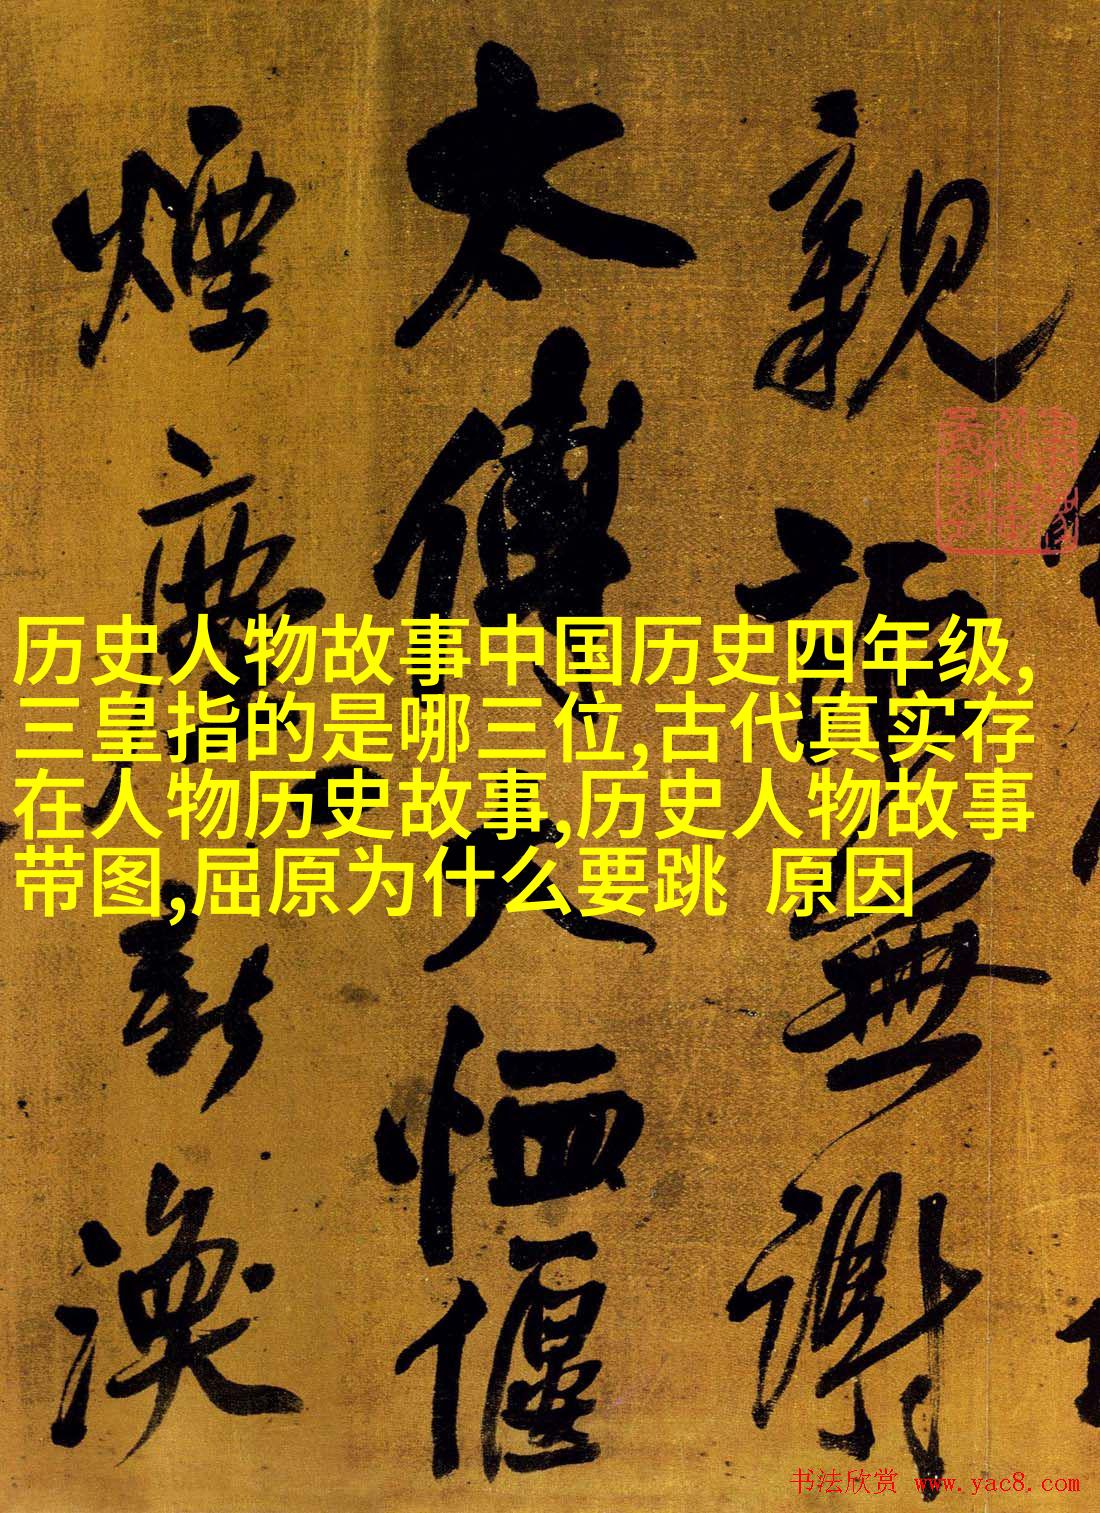 親 無謝
太傅 恤偃
煙塵 渙
历史人物故事中国历史四年级,
三皇指的是哪三位,古代真实存
在人物历史故事,历史人物故事
带图,屈原为什么要跳  原因
书法欣赏 www.yac8.com